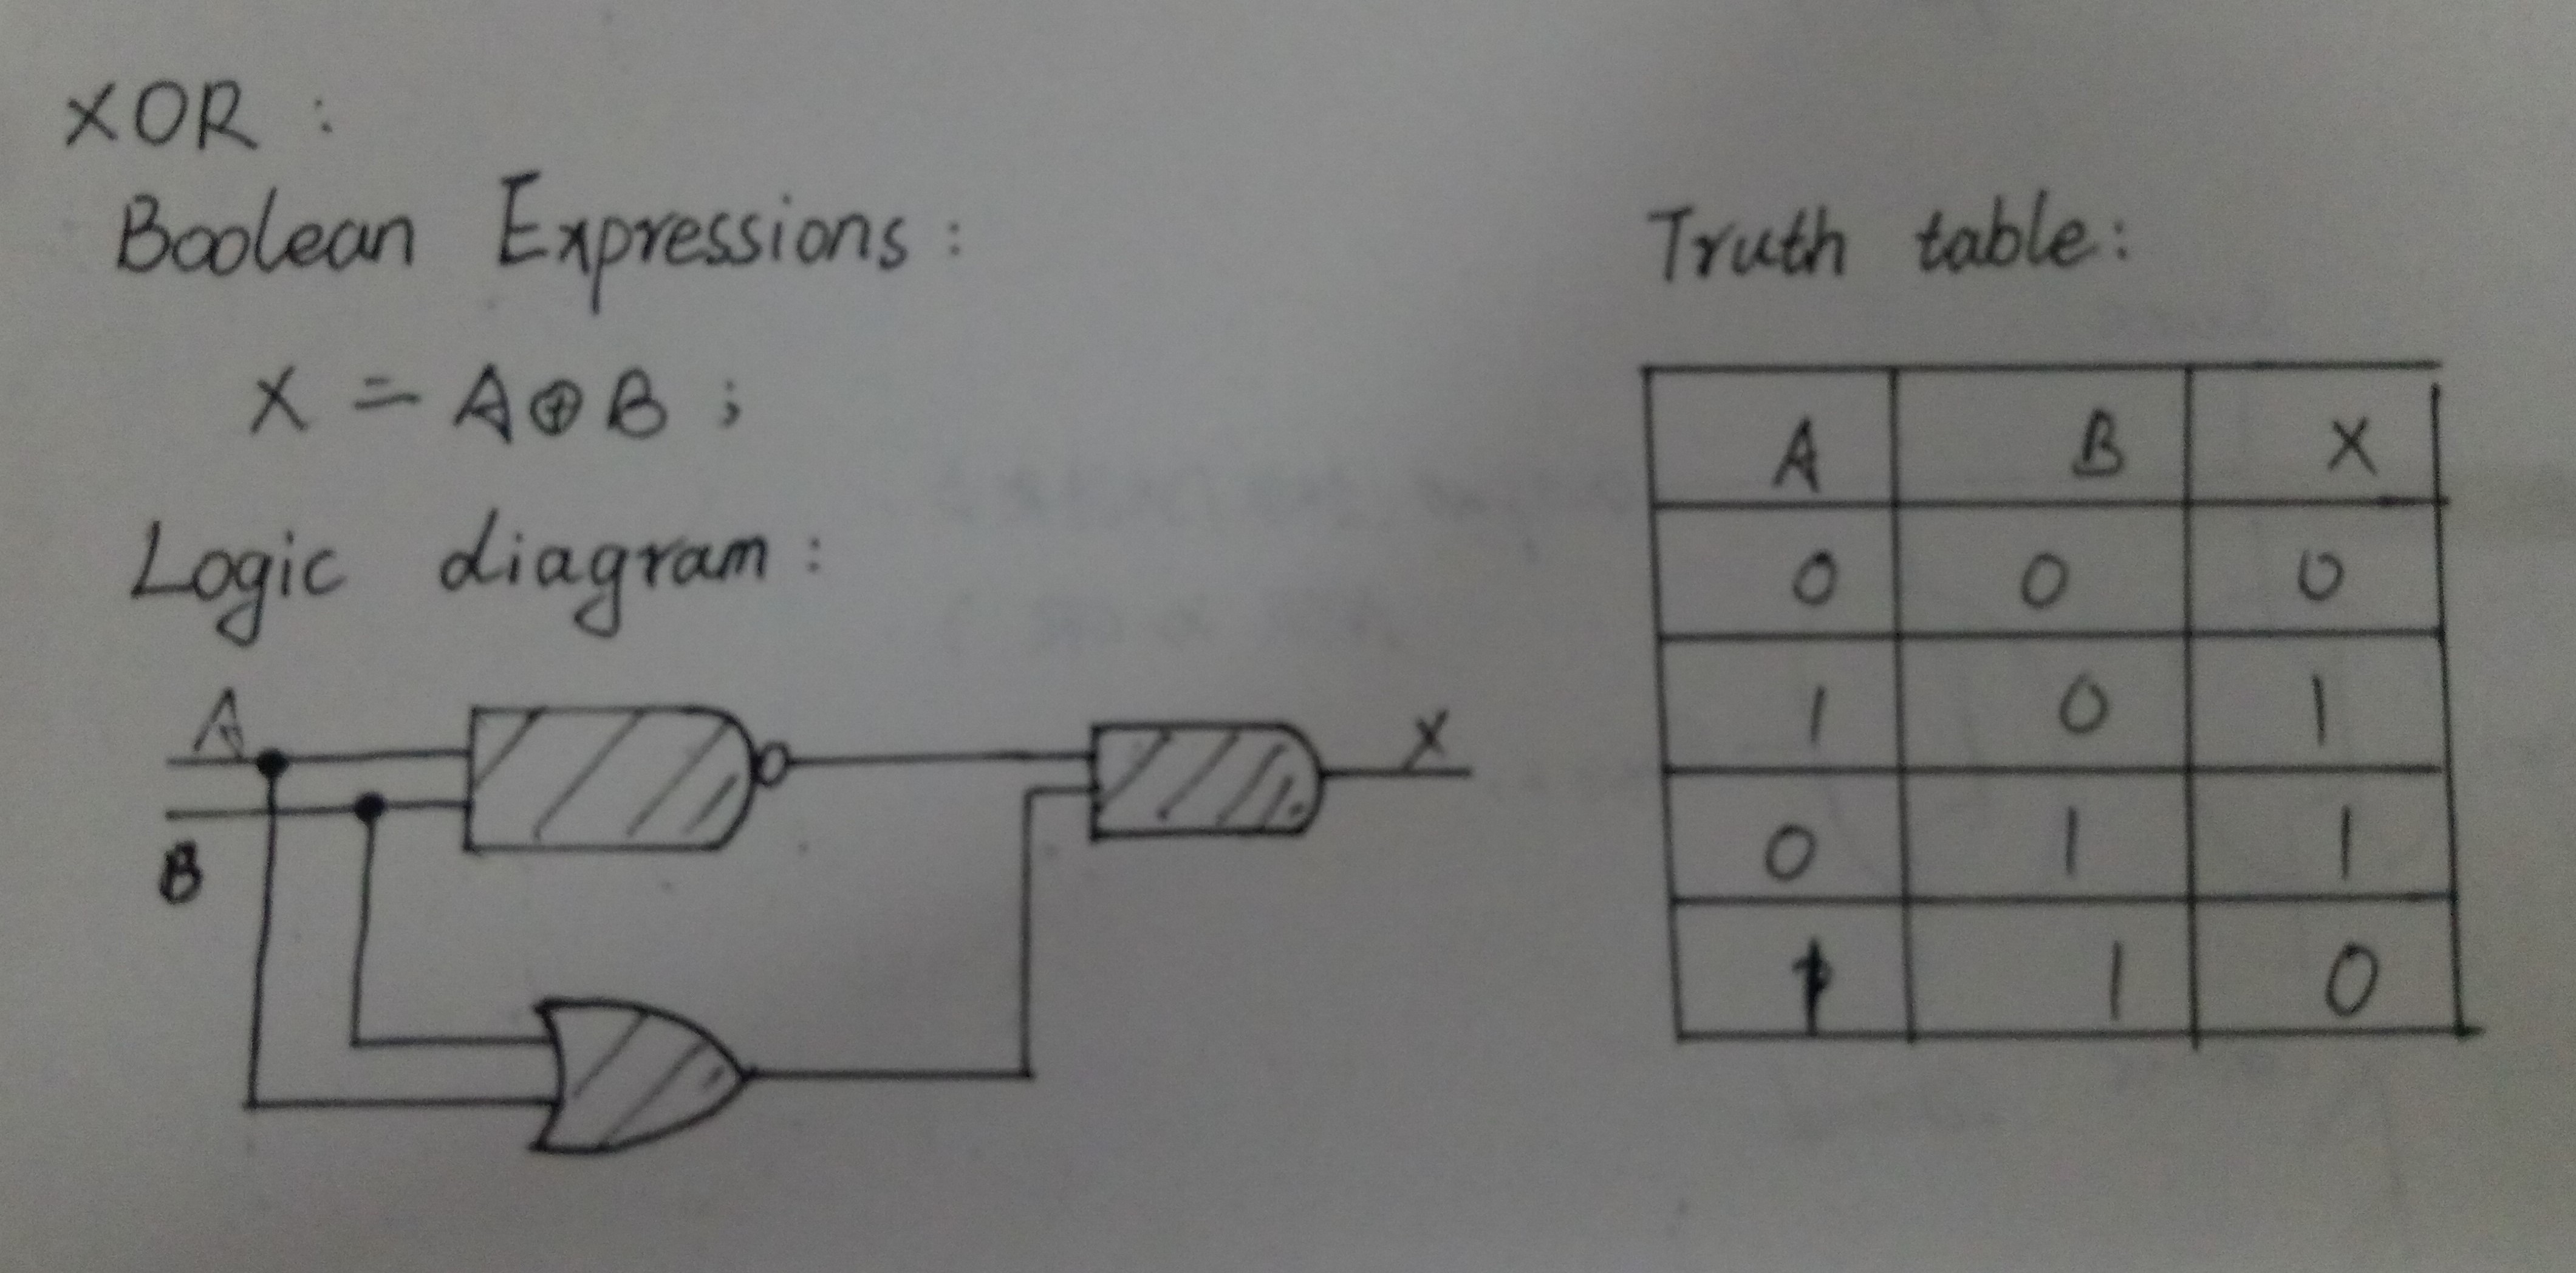 XOR :
Boolean Expressions :
X = A⊕B ;
Logic diagram :
A
B
X
Truth table:
A B X
0 0 0
1 0 1
0 1 1
1 1 0